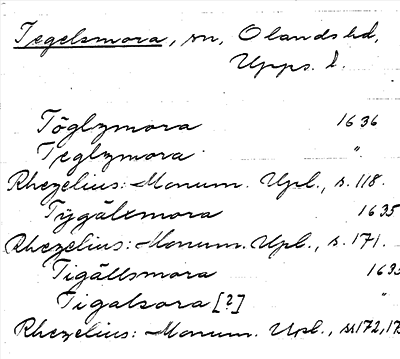 Tegelsmora, sn, Olands hd,
Upps. l.
Töglzmora 1636
Teglzmora "
Rhezelius: Monum. Upl., s. 118.
Tÿgälzmora 1635
Rhezelius: Monum. Upl., s. 171.
Tigällsmora
Tigalsora [?]
Rhezelius: Monum. Upl., ss 172, 17